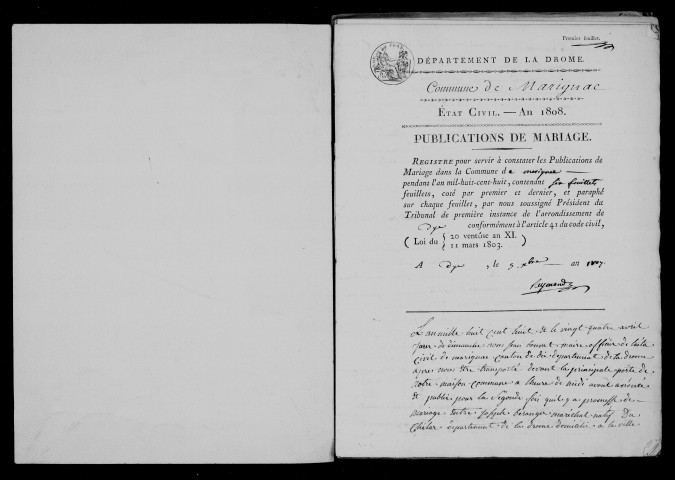 Premier feuillet.
DÉPARTEMENT DE LA DROME.
Commune de Marignac
ÉTAT CIVIL. — AN 1808.
PUBLICATIONS DE MARIAGE.
REGISTRE pour servir à constater les Publications de
Mariage dans la Commune de marignac
pendant l'an mil-huit-cent-huit, contenant six feuillets
feuillets, coté par premier et dernier, et paraphé
sur chaque feuillet, par nous soussigné Président du
Tribunal de première instance de l'arrondissement de
Dye conformément à l'article 41 du code civil,
( Loi du { 20 ventôse an XI. )
11 mars 1803.
A Dye , le 5 xbre an 1807.
Reymond
L'an mille huit cent huit et le vingt quatre avril
jour de dimanche nous jean bouvet maire officier de l'etat
civil de marignac canton de die departement de la drome
apres nous etre transporté devant la principale porte de
notre maison commune a l'heure de midi avons annoncé
et publié pour la segonde fois qu'il y a promesse de
mariage entre joseph beranger marechal natif Du
Chelar departement de la drome domicilié a la ville